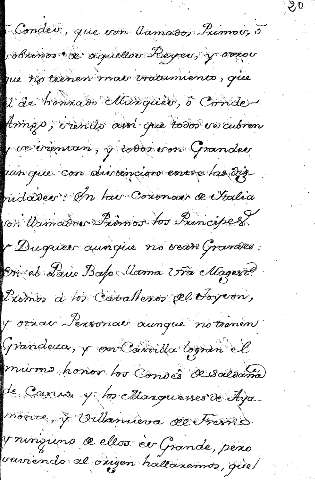 20
ò Condes, que son llamados Primos, ò
sobrinos de aquellos Reyes, y otros
que no tienen mas tratamiento, que
el de honrado Marques, ò Conde
Amigo; siendo assi que todos se cubren
y se sientan, y todos son Grandes
aunque con distincion entre las Dig
nidades: En las Coronas de Italia
son llamados Primos los Principes
y Duques aunque no sean Grandes:
En el Pais Bajo llama Vra Magestd
Primos à los Cavalleros del Toyson,
y otras Personas aunque no tienen
Grandeza, y en Castilla logran el
mismo honor los Condes de
de y los Marqueses de Aya
monte, y Villanueva del Fresno
y ninguno de ellos es Grande, pero
volviendo al origen hallaremos, que